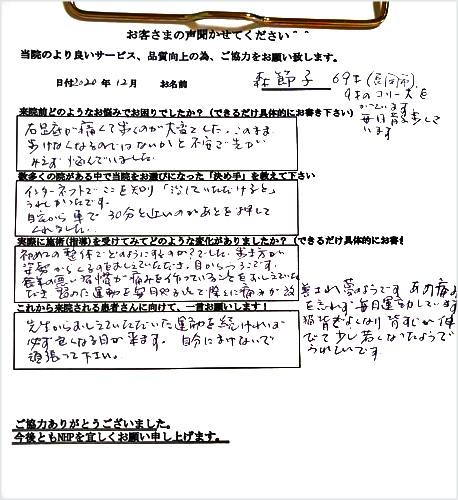 お客さまの声聞かせてください^^
当院のより良いサービス、品質向上の為、ご協力をお願い致します。
日付2020年12月 お名前 森節子 69才(長岡市)
9才のコリーズを
かっています
毎日散歩して
います
来院前どのようなお悩みでお困りでしたか?(できるだけ具体的にお書き下さい)
右足が痛くて歩くのが大変でした。このまま
歩けなくなるのではないかと不安で先が
みえず悩んでいました
数多くの院がある中で当院をお選びになった「決め手」を教えて下さい
インターネットでここを知り「治していただけると」
うれしかったです。
自宅から車で30分と近いのがあとを押して
くれました。
実際に施術(指導)を受けてみてどのような変化がありましたか?(できるだけ具体的にお書き
初めての整体でどのようにするのか?でした 歩き方が
姿勢からくるのをおしえていただき、目からうろこです。
日常の悪い習慣が痛みを作っていることをおしえていた
だき 初めた運動を毎日やるんで 除々に痛みが改
善され夢のようです あの痛み
を忘れず毎日運動しています
猫背もよくなり背すじが伸
びて少し若くなったようで
うれしいです
これから来院される患者さんに向けて、一言お願いします!
先生からおしえていただいた運動を続ければ
必ず良くなる日が来ます。自分にまけないで
頑張って下さい。
ご協力ありがとうございました。
今後ともNHPを宜しくお願い申し上げます。